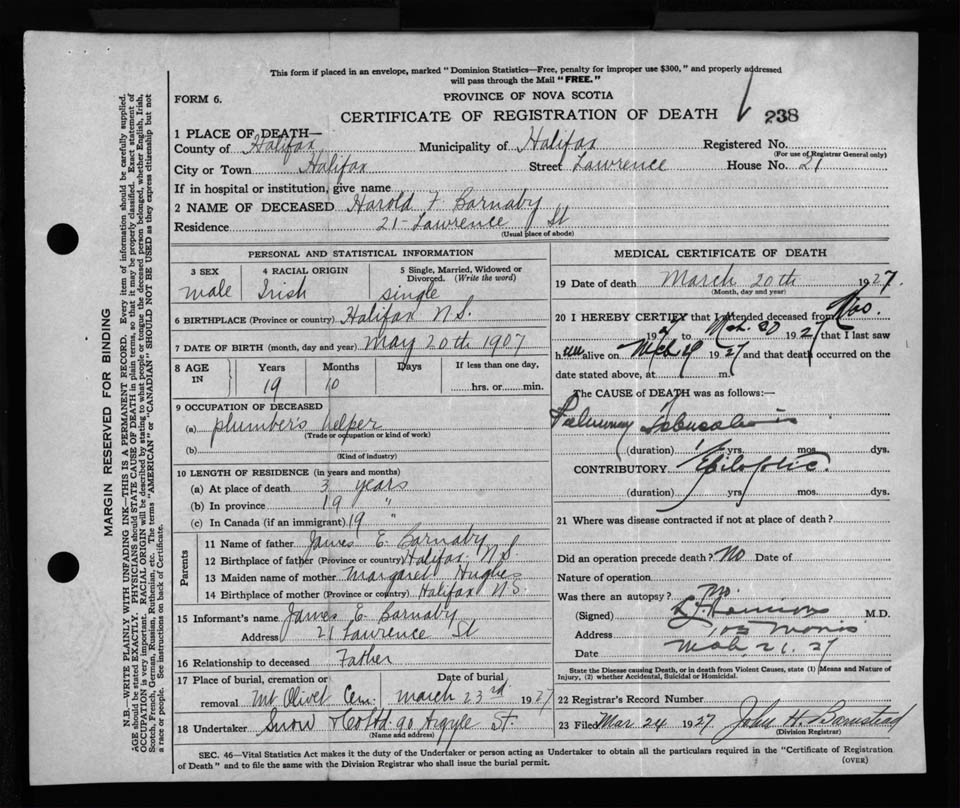 This form if placed in an envelope, marked "Dominion Statistics—Free, penalty for improper use $300," and properly addressed
will pass through the Mail "FREE."
FORM 6.
PROVINCE OF NOVA SCOTIA
CERTIFICATE OF REGISTRATION OF DEATH
238
1 PLACE OF DEATH—
County of Halifax Municipality of Halifax Registered No.
(For use of Registrar General only)
City or Town Halifax Street Lawrence House No. 21
If in hospital or institution, give name
2 NAME OF DECEASED Harold F. Barnaby
Residence 21 - Lawrence St
(Usual place of abode)
PERSONAL AND STATISTICAL INFORMATION
3 SEX 4 RACIAL ORIGIN 5 Single, Married, Widowed or
Divorced. (Write the word)
male Irish single
6 BIRTHPLACE (Province or country) Halifax N.S.
7 DATE OF BIRTH (month, day and year) May 20th 1907
8 AGE IN Years Months Days If less than one day,
19 10 hrs. or min.
9 OCCUPATION OF DECEASED
(a) plumber's helper
(Trade or occupation or kind of work)
(b)
(Kind of industry)
10 LENGTH OF RESIDENCE (in years and months)
(a) At place of death 3 years
(b) In province 19 "
(c) In Canada (if an immigrant) 19 "
Parents
11 Name of father James E. Barnaby
12 Birthplace of father (Province or country) Halifax N S
13 Maiden name of mother Margaret Hughes
14 Birthplace of mother (Province or country) Halifax N S.
15 Informant's name James E Barnaby
Address 21 Lawrence St
16 Relationship to deceased Father
17 Place of burial, cremation or Date of burial
removal Mt Olivet Cem. March 23rd 1927
18 Undertaker Snow & Co Ltd. 90 Argyle St.
(Name and address)
MEDICAL CERTIFICATE OF DEATH
19 Date of death March 20th 1927.
(Month, day and year)
20 I HEREBY CERTIFY that I attended deceased from Nov.
192 to Mch. 20 1927 that I last saw
him alive on Mch 19 1927 and that death occurred on the
date stated above, at m.
The CAUSE OF DEATH was as follows:—
Pulmonary Tuberculosis
(duration) yrs. mos. dys.
CONTRIBUTORY Epileptic.
(duration) yrs. mos. dys.
21 Where was disease contracted if not at place of death?
Did an operation precede death? No Date of
Nature of operation
Was there an autopsy? No.
(Signed) M.D.
Address 105 Morris
Date Mch 21. 27
State the Disease causing Death, or in death from Violent Causes, state (1) Means and Nature of
Injury, (2) whether Accidental, Suicidal or Homicidal.
22 Registrar's Record Number
23 Filed Mar 24 1927. John H. Barnstead
(Division Registrar)
SEC. 46—Vital Statistics Act makes it the duty of the Undertaker or person acting as Undertaker to obtain all the particulars required in the "Certificate of Registration
of Death" and to file the same with the Division Registrar who shall issue the burial permit.
(OVER)
MARGIN RESERVED FOR BINDING
N.B.—WRITE PLAINLY WITH UNFADING INK—THIS IS A PERMANENT RECORD. Every item of information should be carefully supplied.
AGE should be stated EXACTLY. PHYSICIANS should STATE CAUSE OF DEATH in plain terms, so that it may be properly classified. Exact statement of
OCCUPATION is very important. RACIAL ORIGIN will be described by stating to what people or tongue the deceased person belonged, whether English, Irish,
Scotch, French, German, Russian, Ruthenian, etc. The terms "AMERICAN" or "CANADIAN" SHOULD NOT BE USED as they express citizenship but not
a race or people. See instructions on back of Certificate.